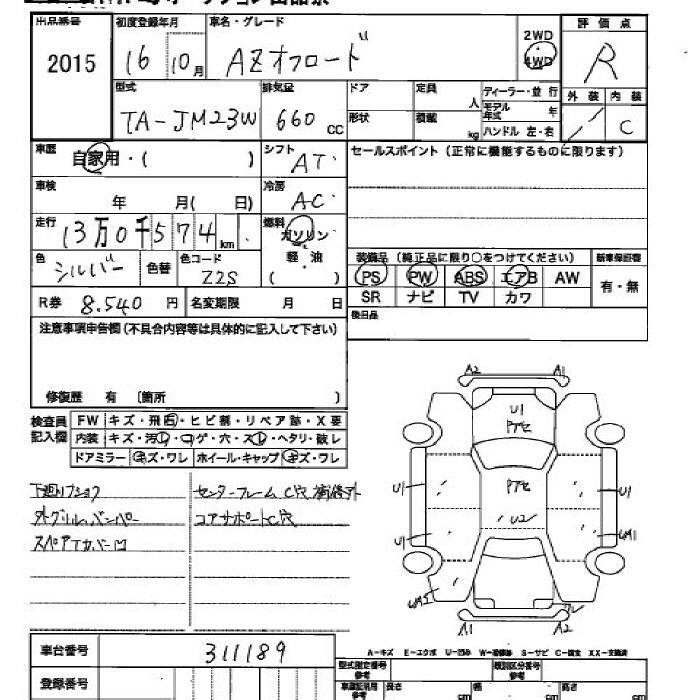 出品番号 初度登録年月 車名・グレード 2WD 評価点
2015 16 10月 AZオフロード 4WD R
型式 排気量 ドア 定員 ディーラー・並行 外装 内装
TA-JM23W 660 CC 形状 人 積載 kg モデル年式 年 ハンドル 左・右 C
車歴 自家用・( ) シフト AT セールスポイント (正常に機能するものに限ります)
車検 年 月( 日) 冷房 AC
走行 13万0千574km 燃料 ガソリン
色 シルバー 色替 色コード Z2S 軽・油 ( ) 装備品 (純正品に限り○をつけてください) 新車保証書
PS PW ABS エアB AW 有・無
R券 8.540円 名変期限 月 日 SR ナビ TV カワ
注意事項申告欄(不具合内容等は具体的に記入して下さい) 後日品
修復歴 有 〔箇所 〕
検査員 FW キズ・飛石・ヒビ割・リペア跡・X要
記入欄 内装 キズ・汚レ・コゲ・穴・スレ・ヘタリ・破レ
ドアミラー キズ・ワレ ホイール・キャップ キズ・ワレ
A2 A1
U1
アセ
アセ
U1 U1
U2
U1 WA1
WA2
A1 A2
センターフレームC穴補修アト
コアサポートC穴
スペアTカバー凹
A-キズ E-エクボ U-凹み W-補修跡 S-サビ C-腐食 XX-交換済
車台番号 311189
型式指定番号 類別区分番号
登録番号 長さ cm 幅 cm 高さ cm